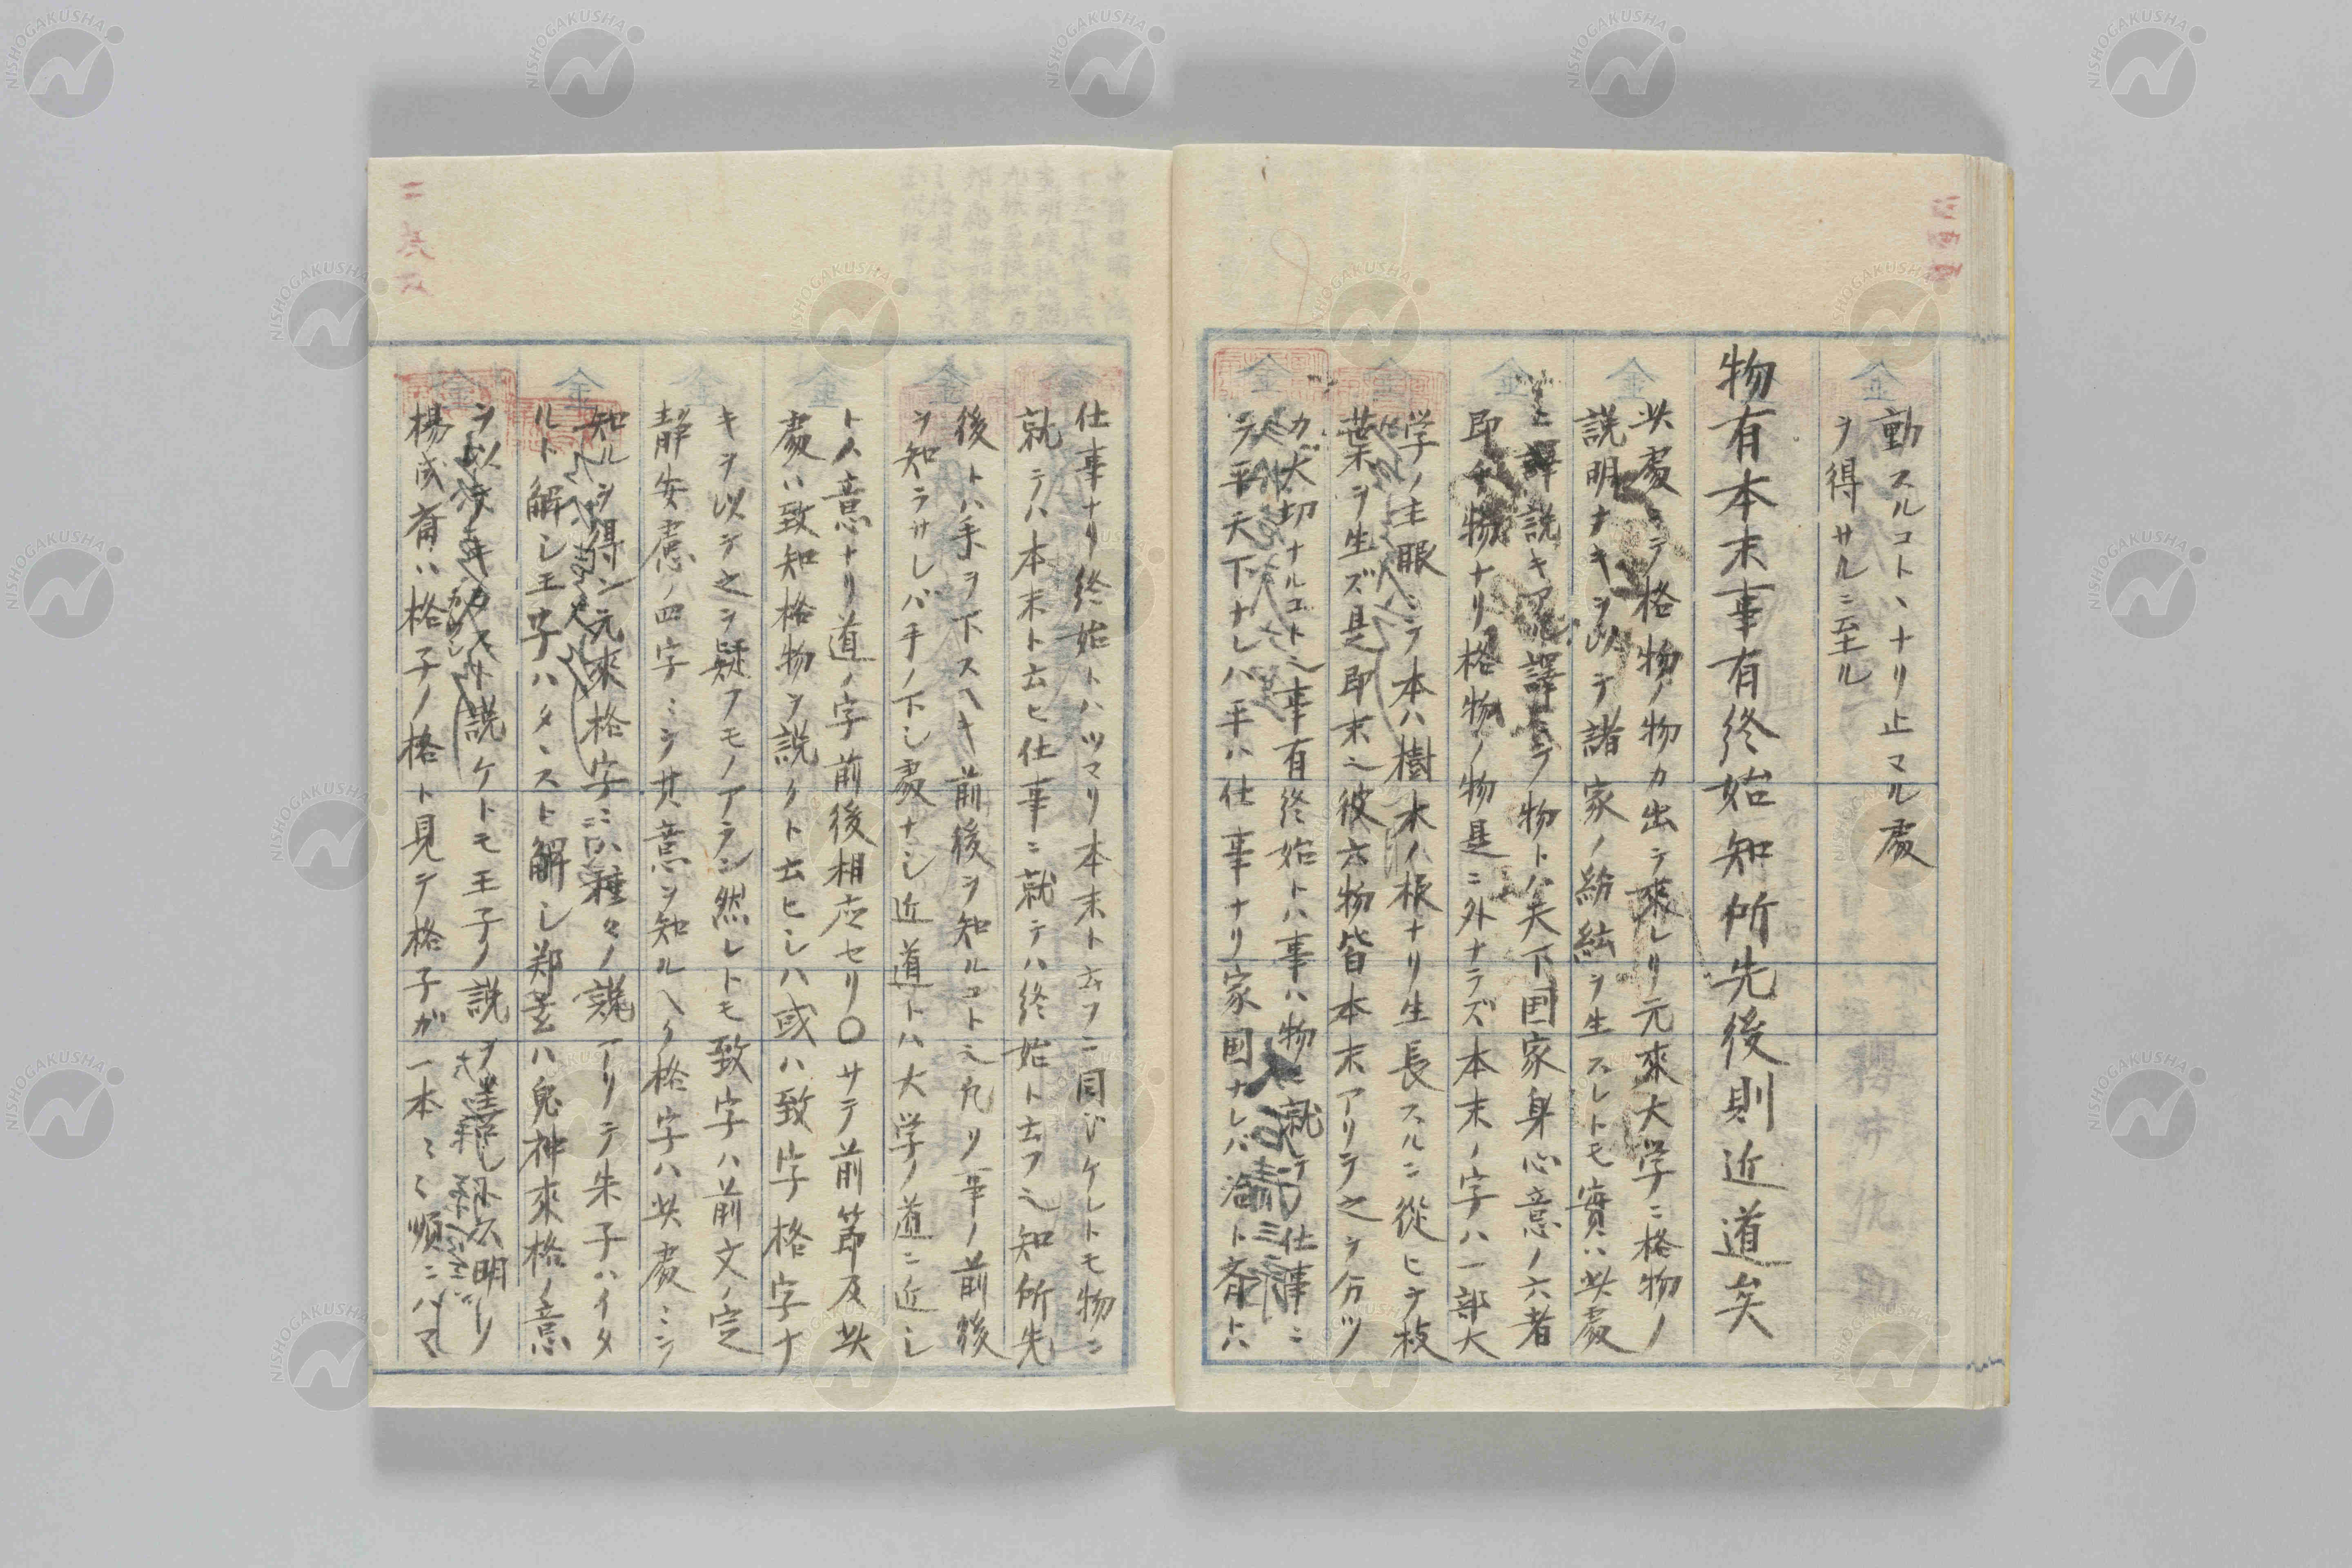 動スルコトヽナリ止マル處
ヲ得サルニ至ル
物有本末事有終始知所先後則近道矣
此處ニテ格物ノ物カ出テ來レリ元來大学ニ格物ノ
説明ナキヲ以テ諸家ノ紛紜ヲ生スレトモ實ハ此處
ニ譯説キアル譯ニテ物トハ天下国家身心意ノ六者
即チ物ナリ格物ノ物是ニ外ナラズ本末ノ字ハ一部大
学ノ主眼ニテ本ハ樹木ノ根ナリ生長スルニ從ヒテ枝
葉ヲ生ズ是即末也彼六物皆本末アリテ之ヲ分ツ
カ大切ナルコト也事有終始トハ事ハ物ニ就テノ仕事ニ
テ平天下ナレハ平ハ仕事ナリ家国ナレバ治ト斉トハ
仕事ナリ終始トハツマリ本末ト云フニ同ジケレトモ物ニ
就テハ本末ト云ヒ仕事ニ就テハ終始ト云フ也知所先
後トハ手ヲ下スヘキ前後ヲ知ルコト也凡ソ事ノ前後
ヲ知ラサレバ手ノ下シ處ナシ近道トハ大学ノ道ニ近シ
トノ意ナリ道ノ字前後相応セリ〇サテ前節及此
處ハ致知格物ヲ説クト云ヒシハ或ハ致字格字ナ
キヲ以テ之ヲ疑フモノアラン然レトモ致字ハ前文ノ定
静安慮ノ四字ニテ其意ヲ知ルヘク格字ハ此處ニテ
知ルヲ得ン元來格字ニハ種々ノ説アリテ朱子ハイタ
ルト解シ王子ハタヽスト解シ郑玄ハ鬼神來格ノ意
ヲ以テ説ケトモ王子ノ説
楊成齋ハ格子ノ格ト見テ格子ガ一本ミミ順ニハマ